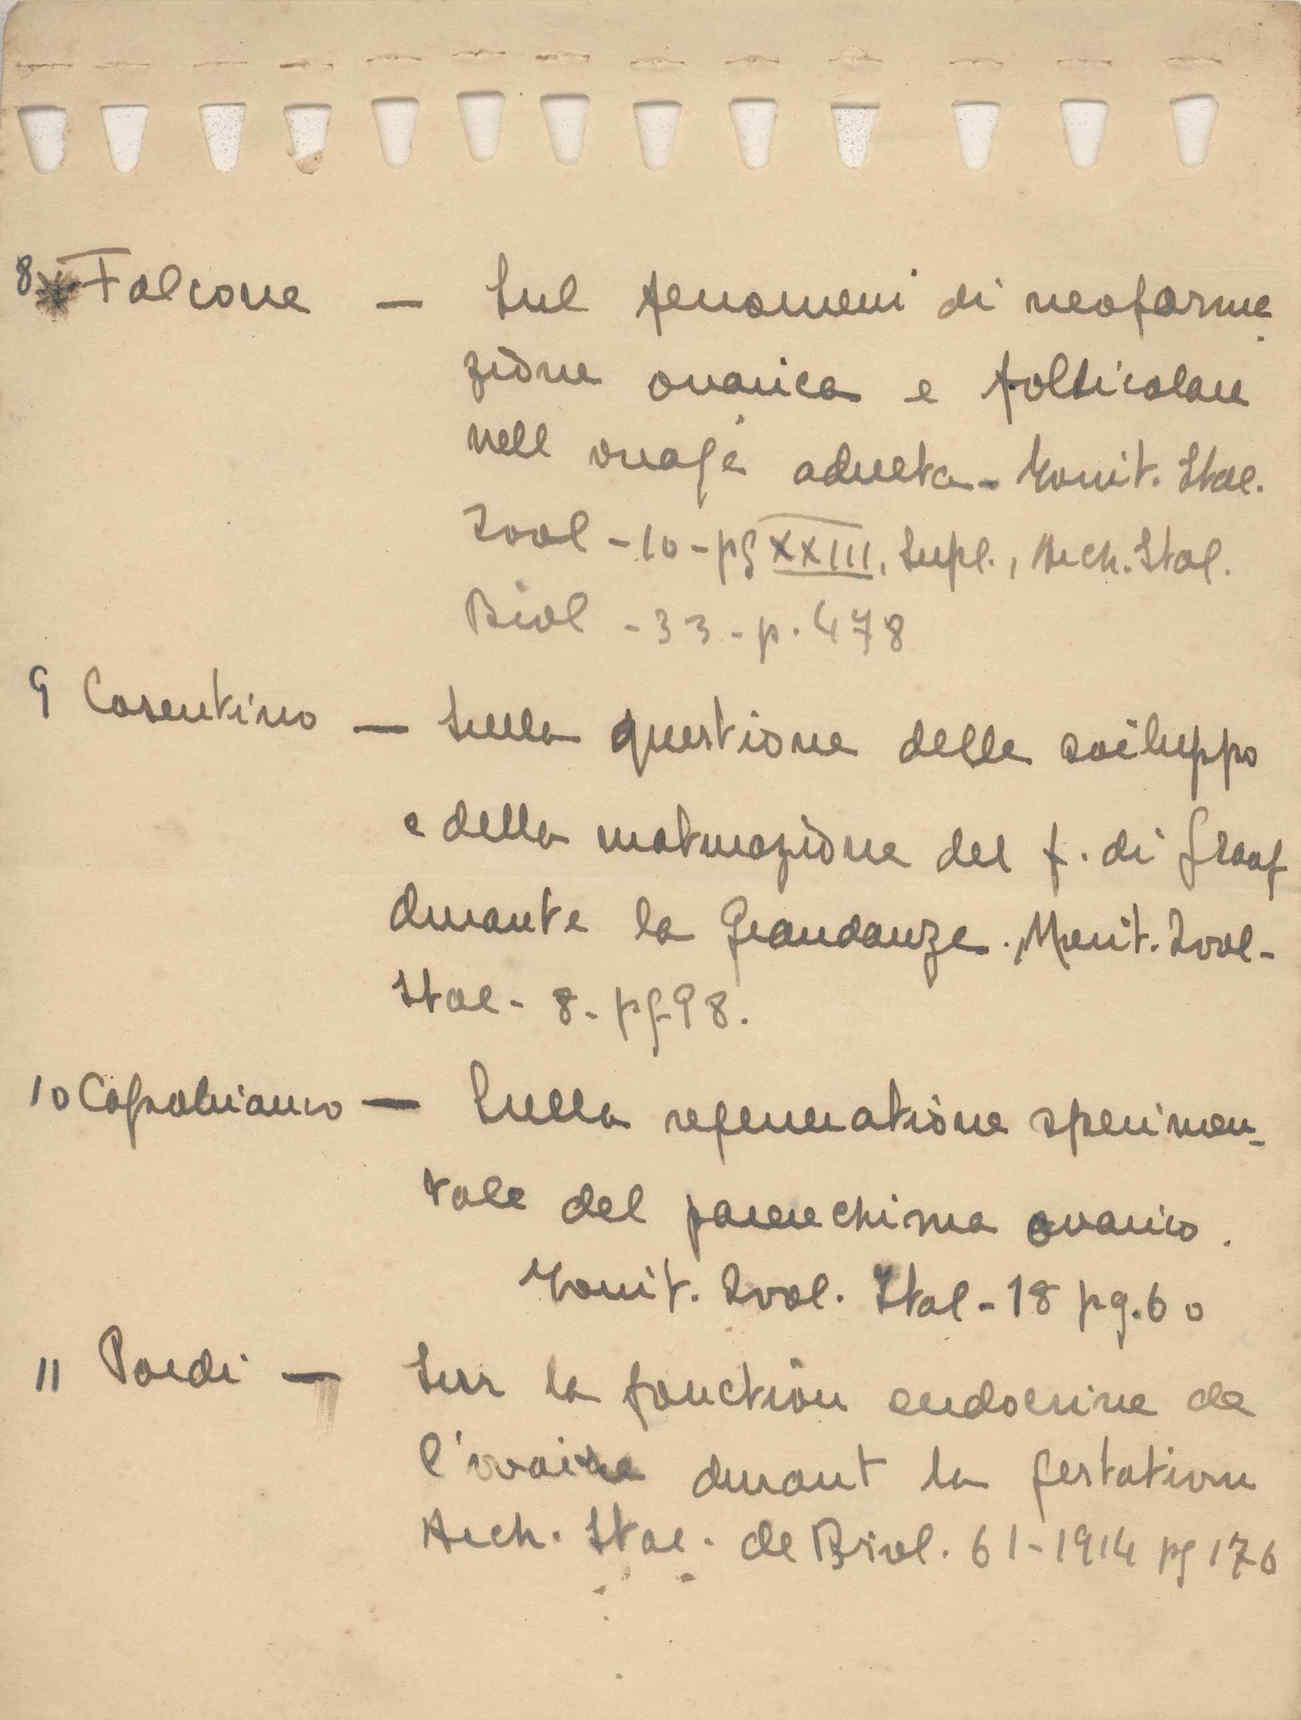 8 * Falcone — Sul fenomeni di neoforma
zione ovarica e follicolare
nell ovaje adulta - Monit. Ital.
Zool - 10 - pg XXIII, Supl., Arch. Ital.
Biol - 33 - p. 478
9 Cosentino — Sulla questione delle sviluppo
e della maturazione del f. di Graaf
durante la Grandanze. Monit. Zool-
Ital - 8 - pg 98.
10 Capobianco — Sulla regeneratione sperimen-
tale del parenchima ovarico.
Monit. Zool. Ital - 18 pg. 60
11 Pardi — Sur la fonction endocrine de
l'ovaire durant la gestation
Arch. Ital. de Biol. 61 - 1914 pg 176